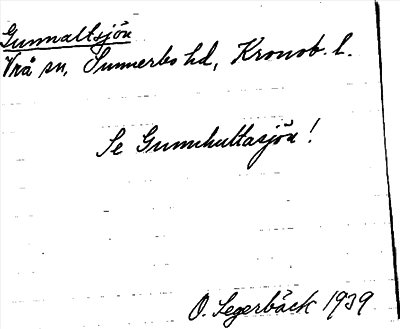 Gunnaltsjön
Vrå sn, Sunnerbo hd, Kronob. l.
Se Gunnhultasjön!
O. Segerbäck 1939